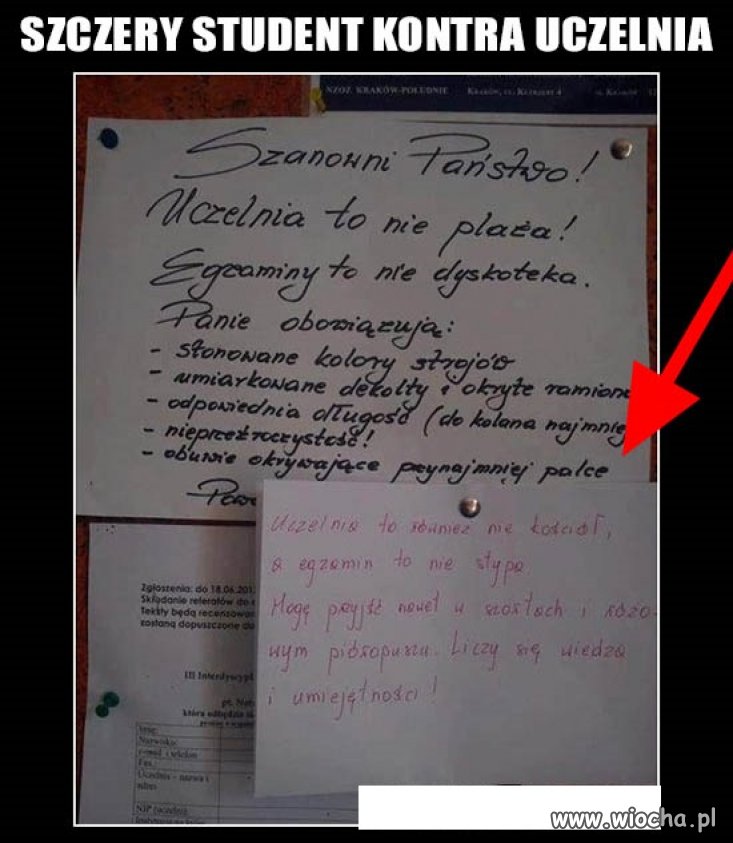 SZCZERY STUDENT KONTRA UCZELNIA
NZOZ KRAKÓW-POŁUDNIE
Szanowni Państwo!
Uczelnia to nie plaża!
Egzaminy to nie dyskoteka.
Panie obowiązują:
- stonowane kolory strojów
- umiarkowane dekolty i okryte ramiona
- odpowiednia długość (do kolana najmniej
- nieprzeźroczystość!
- obuwie okrywające przynajmniej palce
Uczelnia to również nie kościół,
a egzamin to nie stypa
Mogę przyjść nawet w szortach i różo-
wym pióropuszu. Liczy się wiedza
i umiejętności!
Zgłoszenia: do 18.06.201
Składanie referatów do
Teksty będą recenzowan
zostaną dopuszczone do
III Interdyscypl
która odbędzie
Imię:
Nazwisko:
e-mail i telefon
Fax.:
Uczelnia - nazwa i
adres
NIP
www.wiocha.pl